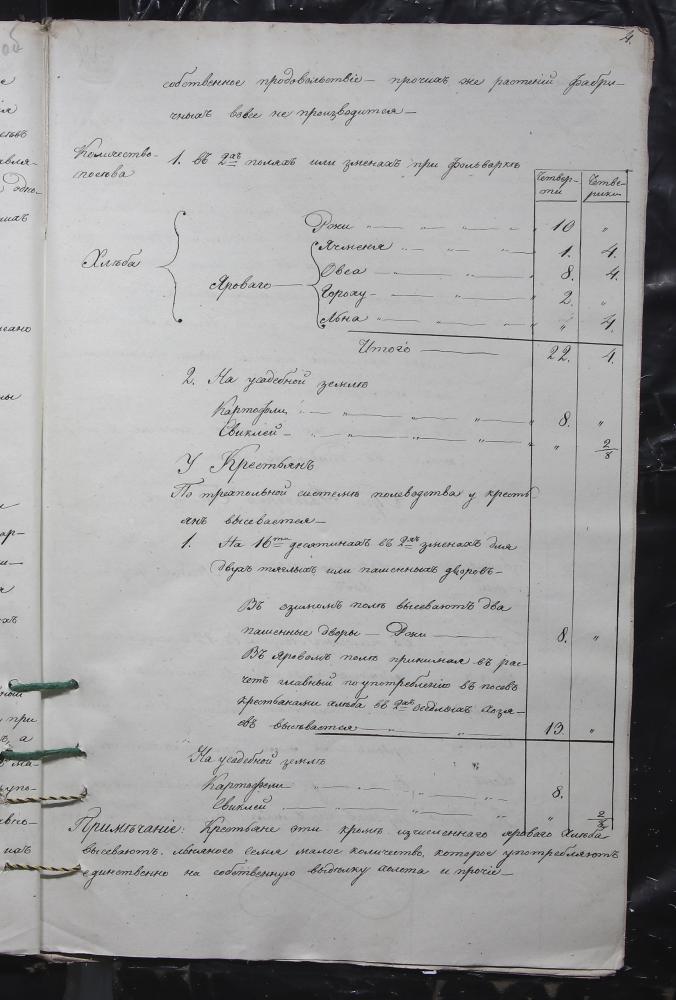 4.
собственное продовольствіе — прочихъ же растеній фабри-
чныхъ вовсе не производится —
Количество посѣва
1. въ 2хъ поляхъ или змѣнахъ при фольваркѣ
Четвер-ти Четве-рики
Ржи — " — 10 "
Хлѣба
Ячменя — " — 1. 4.
Овса — " — 8. 4.
Яроваго —
Гороху — " — 2. "
Льна — " — " 4.
Итого — 22. 4.
2. На усадебной землѣ
Картофли — " — 8. "
Свиклей — " — " 2/8
У Крестьянъ
По трехпольной системѣ полеводства у кресть
янъ высевается —
1. На 16ти десятинахъ въ 2хъ змѣнахъ для
двухъ тяглыхъ или пашенныхъ дворовъ —
Въ озимомъ полѣ высеваютъ два
пашенные дворы — Ржи — 8. "
Въ Яровомъ полѣ принимая въ рас-
четъ главный по употребленію въ посевъ
крестьянами хлѣба въ 2хъ осѣдлыхъ хозя-
евъ высѣвается — " — 13. "
На усадебной землѣ
Картофели — " — 8.
Свиклей — " — " 2/8
Примѣчаніе: Крестьяне эти кромѣ изчисленнаго яроваго хлѣба
высеваютъ льняного семя малое количество, которое употребляютъ
единственно на собственную выдѣлку холста и прочіе —